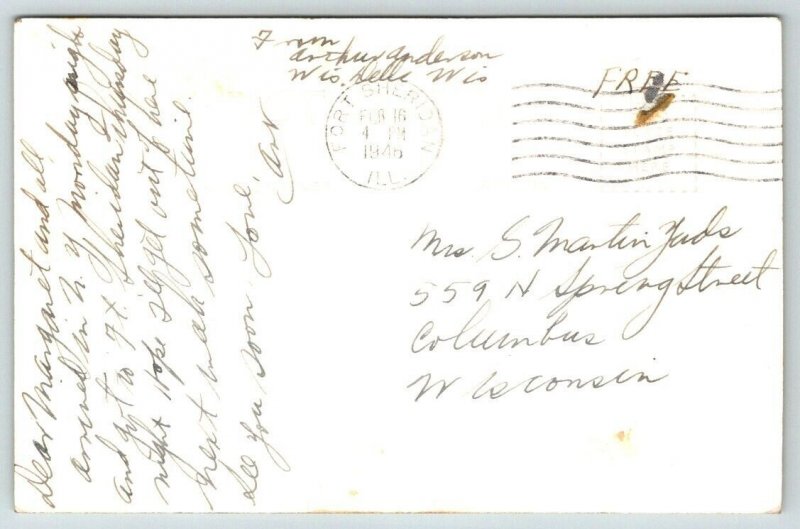 From
Arthur Anderson
Wis Dells Wis
FREE
FORT SHERIDAN
FEB 16
4 PM
1946
ILL.
Mrs. S. Martin
559 N Spring Street
Columbus
Wisconsin
Dear Margaret and all
arrived in N. Y Monday night
and got to Ft Sheridan Thursday
night Hope I'll get out of here
next week sometime.
See you soon. Love,
Art